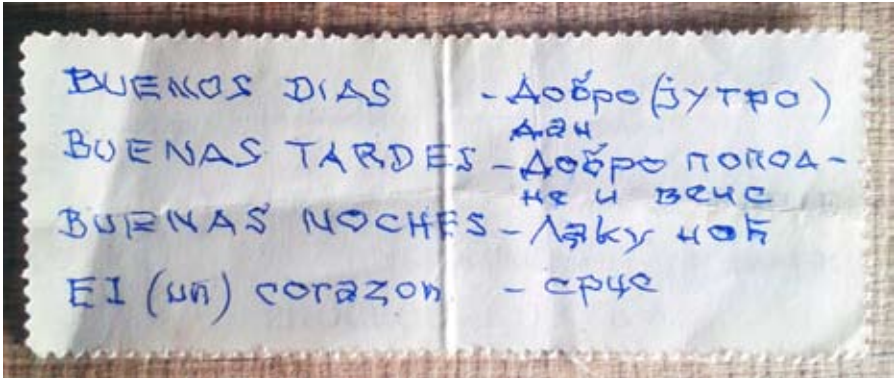 BUENOS DIAS - Добро (јутро)
дан
BUENAS TARDES - Добро попод-
не и вече
BUENAS NOCHES - Лаку ноћ
EI (un) corazon - срце